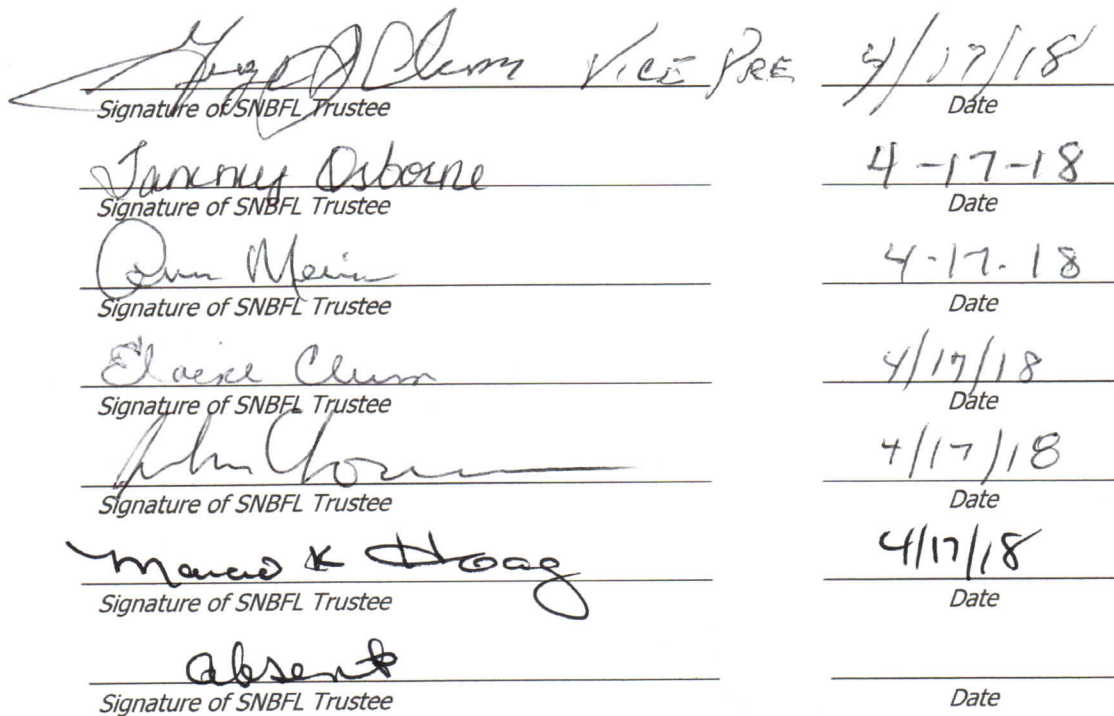 Clum VICE PRE 4/17/18
Signature of SNBFL Trustee Date
Tammy Osborne 4-17-18
Signature of SNBFL Trustee Date
4-17-18
Signature of SNBFL Trustee Date
Elaine Clum 4/17/18
Signature of SNBFL Trustee Date
John 4/17/18
Signature of SNBFL Trustee Date
K Hoag 4/17/18
Signature of SNBFL Trustee Date
absent
Signature of SNBFL Trustee Date